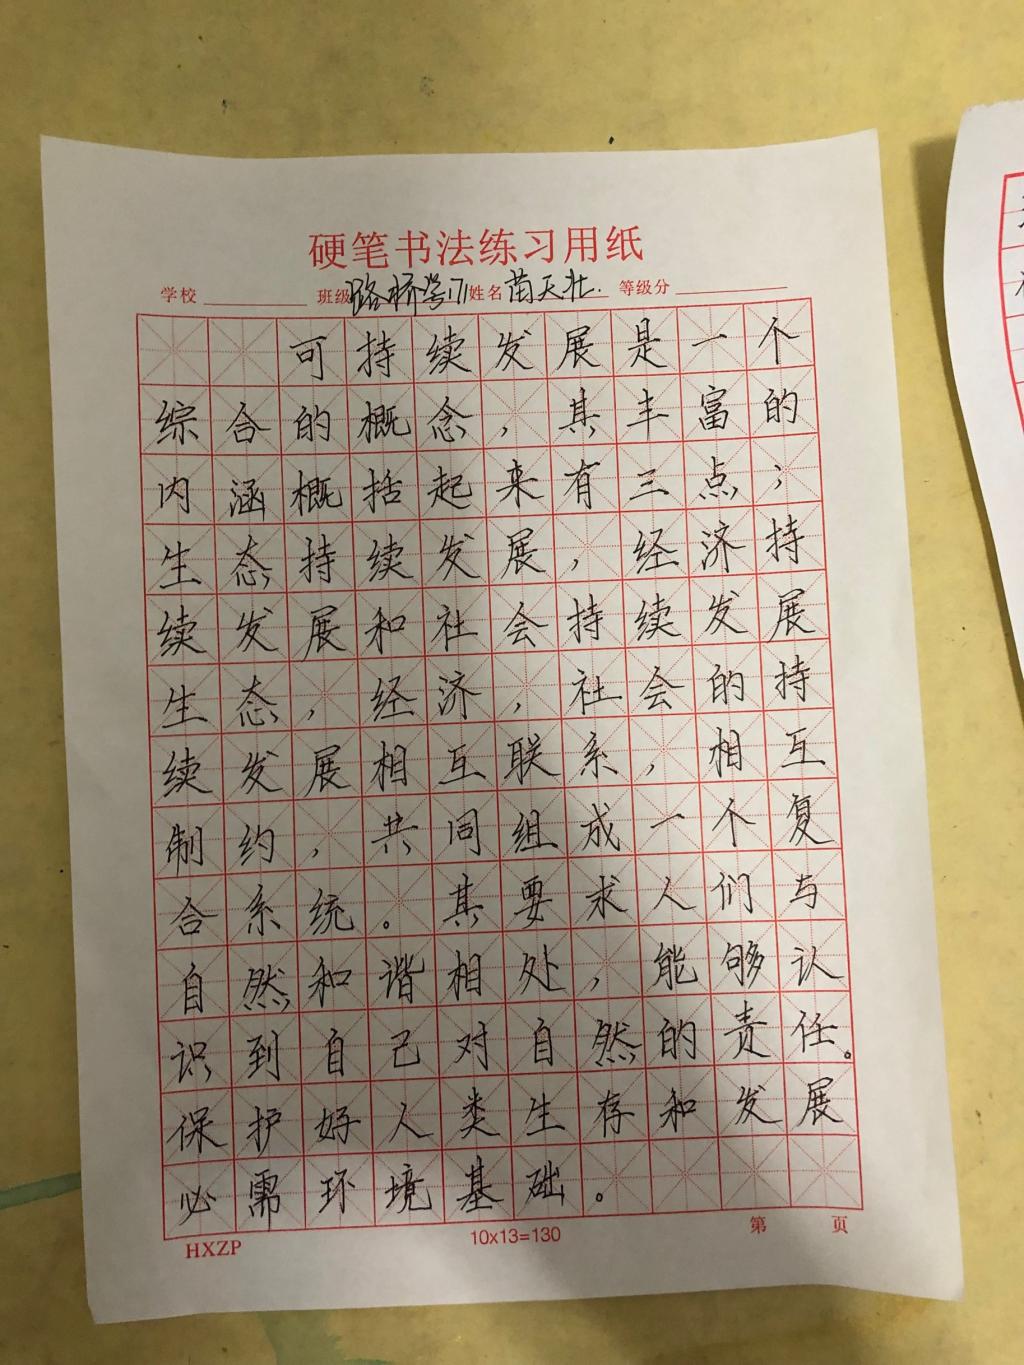 硬笔书法练习用纸
学校 班级 路桥学171 姓名 苗天壮. 等级分
可持续发展是一个
综合的概念，其丰富的
内涵概括起来有三点；
生态持续发展，经济持
续发展和社会持续发展
生态，经济，社会的持
续发展相互联系，相互
制约，共同组成一个复
合系统。其要求人们与
自然和谐相处，能够认
识到自己对自然的责任。
保护好人类生存和发展
必需环境基础。
HXZP 10x13=130 第 页